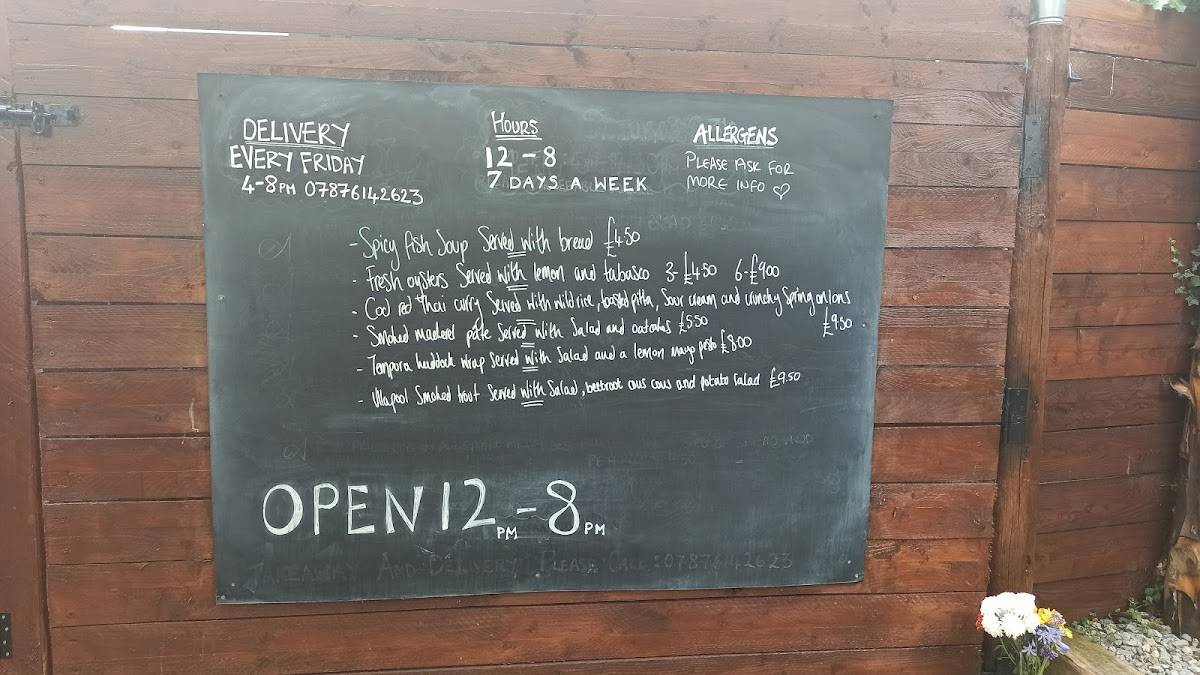 DELIVERY
EVERY FRIDAY
4-8PM 07876142623
HOURS
12-8
7 DAYS A WEEK
ALLERGENS
PLEASE ASK FOR
MORE INFO ♡
- Spicy fish Soup Served with bread £4.50
- Fresh oysters Served with lemon and tabasco 3-£4.50 6-£9.00
- Cod red Thai curry Served with wild rice, toasted pitta, Sour cream and crunchy Spring onions
£9.50
- Smoked mackerel pate Served with Salad and oatcakes £5.50
- Tempora haddock wrap Served with Salad and a lemon mayo pesto £8.00
- Ullapool Smoked trout Served with Salad, beetroot cous cous and potato Salad £9.50
OPEN 12PM-8PM
TAKEAWAY AND DELIVERY PLEASE CALL: 07876142623